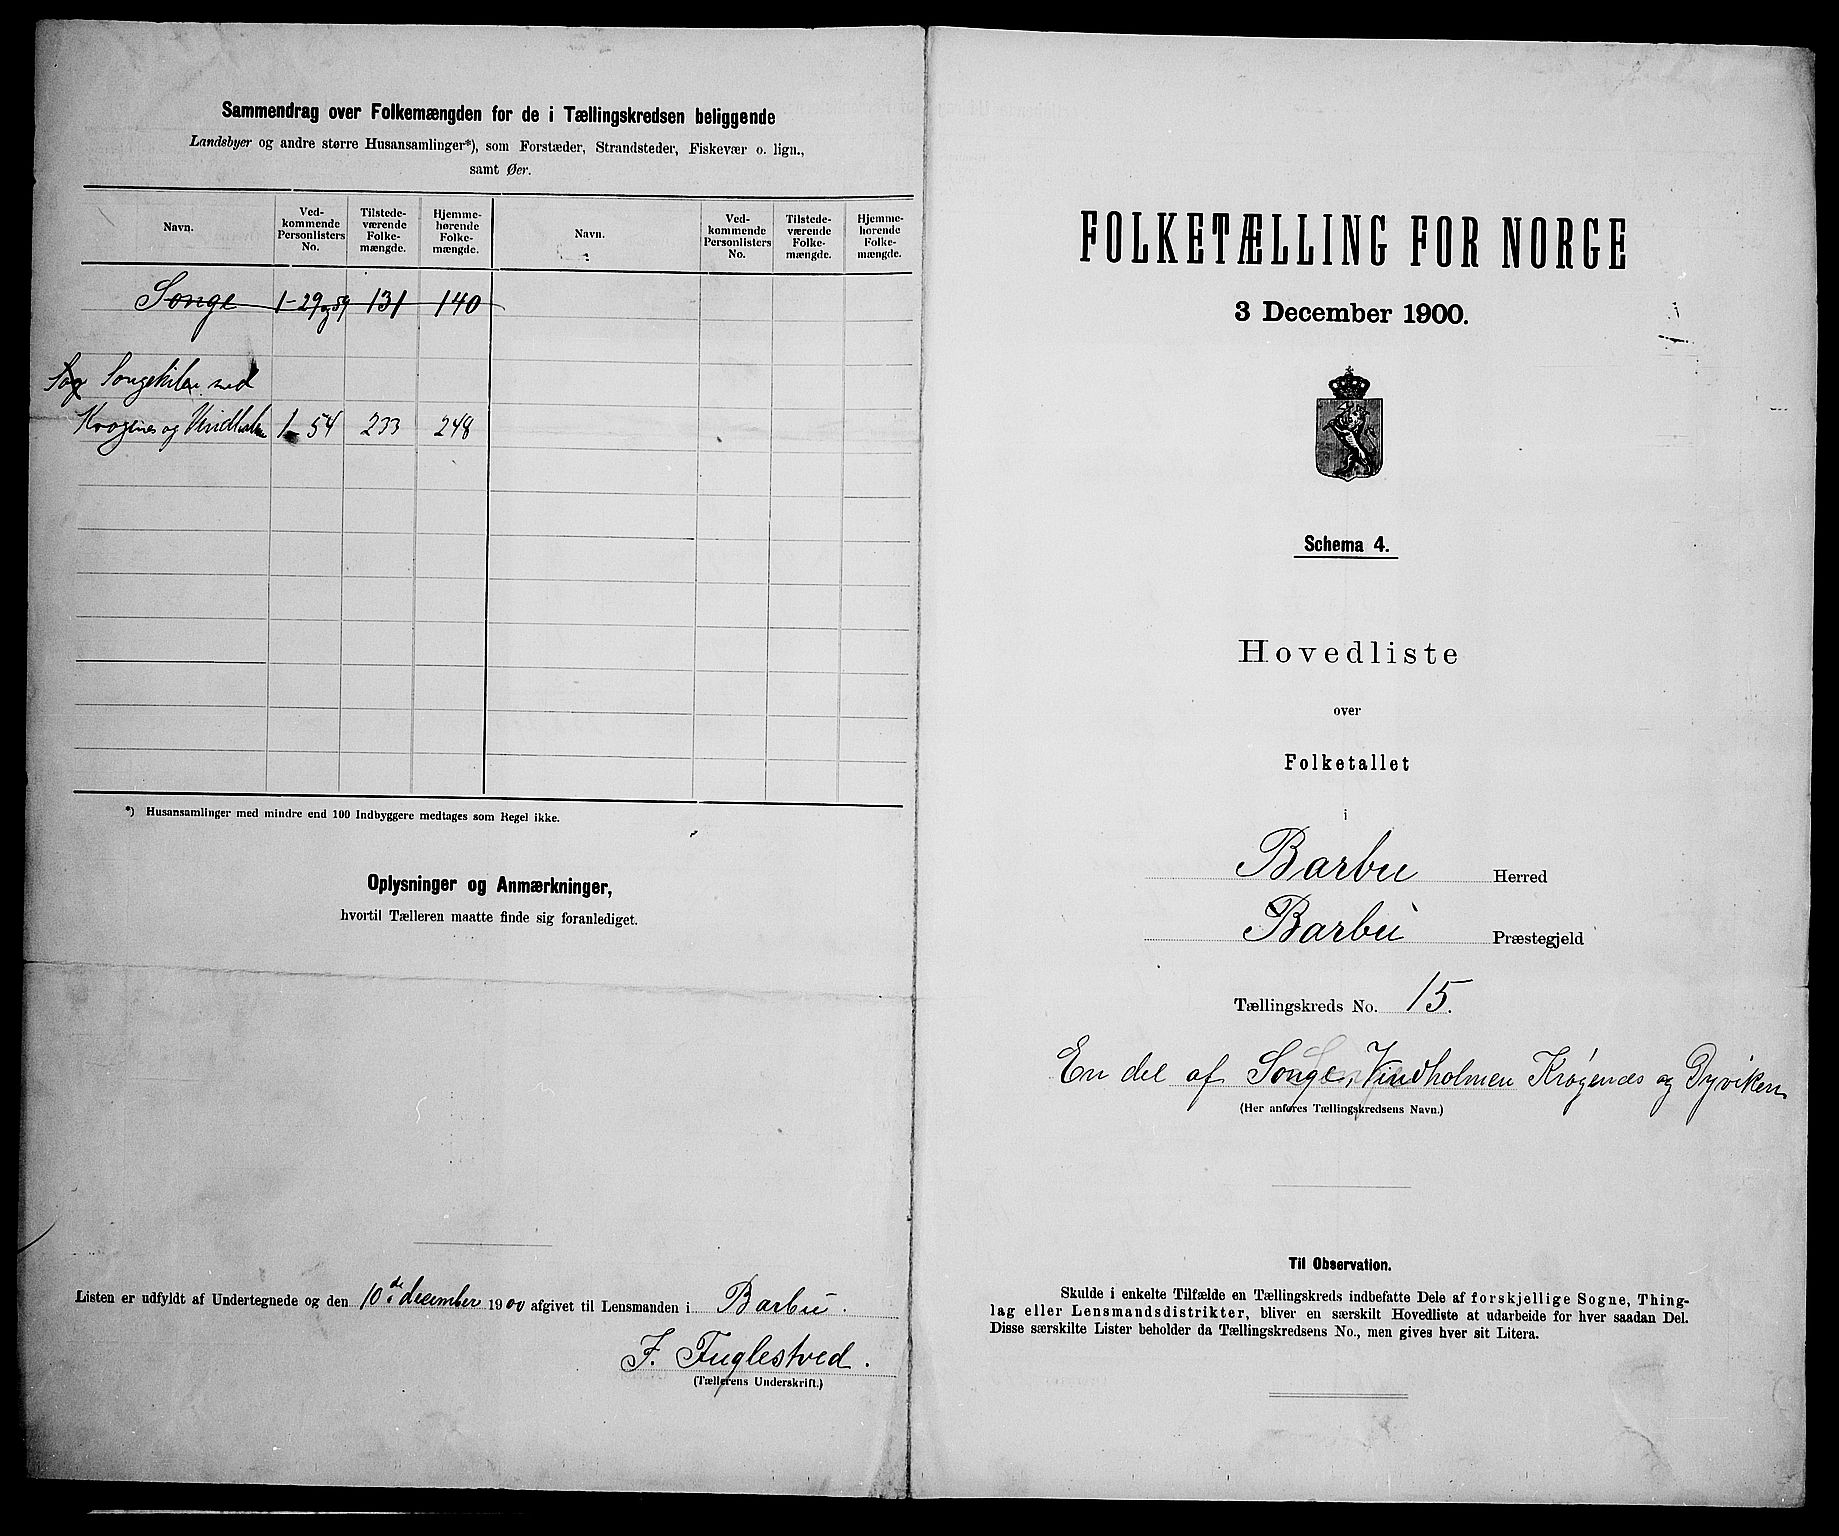 Sammendrag over Folkemængden for de i Tællingskredsen beliggende
Landsbyer og andre større Husansamlinger*), som Forstæder, Strandsteder, Fiskevær o. lign.,
samt Øer.
Navn.
Ved-
kommende
Personlisters
No.
Tilstede-
værende
Folke-
mængde.
Hjemme-
hørende
Folke-
mængde.
Navn.
Ved-
kommende
Personlisters
No.
Tilstede-
værende
Folke-
mængde.
Hjemme-
hørende
Folke-
mængde.
Songe 1-29 og 59 131 140
Songekilen med
Krogenes og Vindholm 1-54 233 248
*) Husansamlinger med mindre end 100 Indbyggere medtages som Regel ikke.
Oplysninger og Anmærkninger,
hvortil Tælleren maatte finde sig foranlediget.
Listen er udfyldt af Undertegnede og den 10de december 1900 afgivet til Lensmanden i Barbu.
F. Fuglestved.
(Tællerens Underskrift.)
FOLKETÆLLING FOR NORGE
3 December 1900.
Schema 4.
Hovedliste
over
Folketallet
i
Barbu Herred
Barbu Præstegjeld
Tællingskreds No. 15.
En del af Songe, Vindholmen Krøgenes og Dyviken
(Her anføres Tællingskredsens Navn.)
Til Observation.
Skulde i enkelte Tilfælde en Tællingskreds indbefatte Dele af forskjellige Sogne, Thing-
lag eller Lensmandsdistrikter, bliver en særskilt Hovedliste at udarbeide for hver saadan Del.
Disse særskilte Lister beholder da Tællingskredsens No., men gives hver sit Litera.